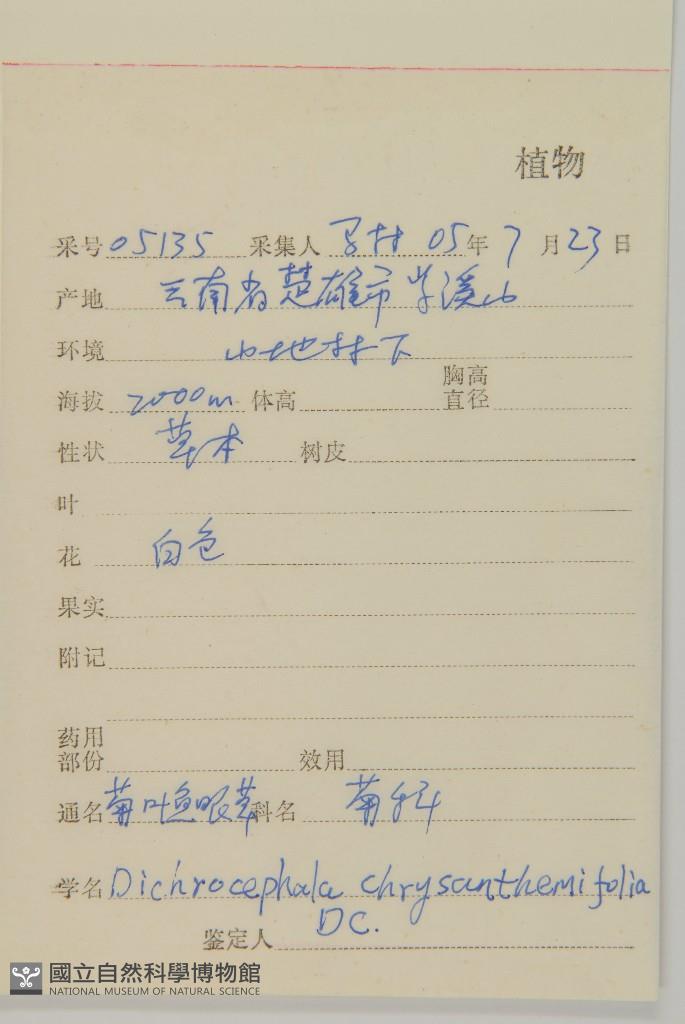 植物
采号 05135 采集人 05年7月23日
产地 云南省楚雄市紫溪山
环境 山地林下
海拔 2000m 体高 胸高直径
性状 草本 树皮
叶
花 白色
果实
附记
药用部份 效用
通名 菊叶鱼眼草 科名 菊科
学名 Dichrocephala chrysanthemifolia
DC.
鉴定人
國立自然科學博物館
NATIONAL MUSEUM OF NATURAL SCIENCE